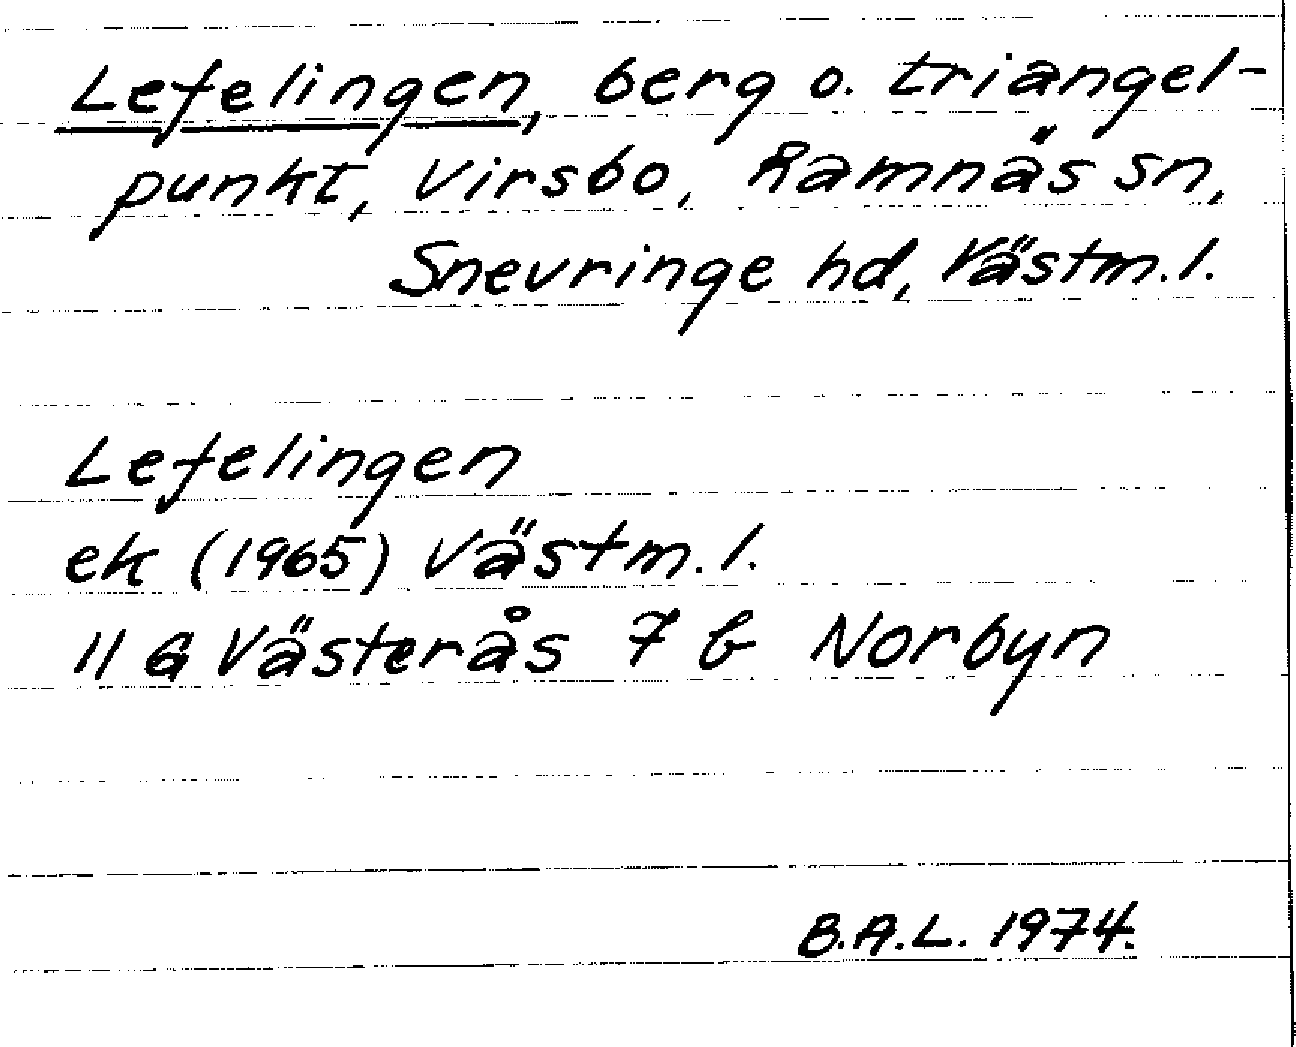 Lefelingen, berg o. triangel-
punkt, Virsbo, Ramnäs sn,
Snevringe hd, Västm. l.
Lefelingen
ek (1965) Västm. l.
11 G Västerås 7 b Norbyn
B.A.L. 1974.